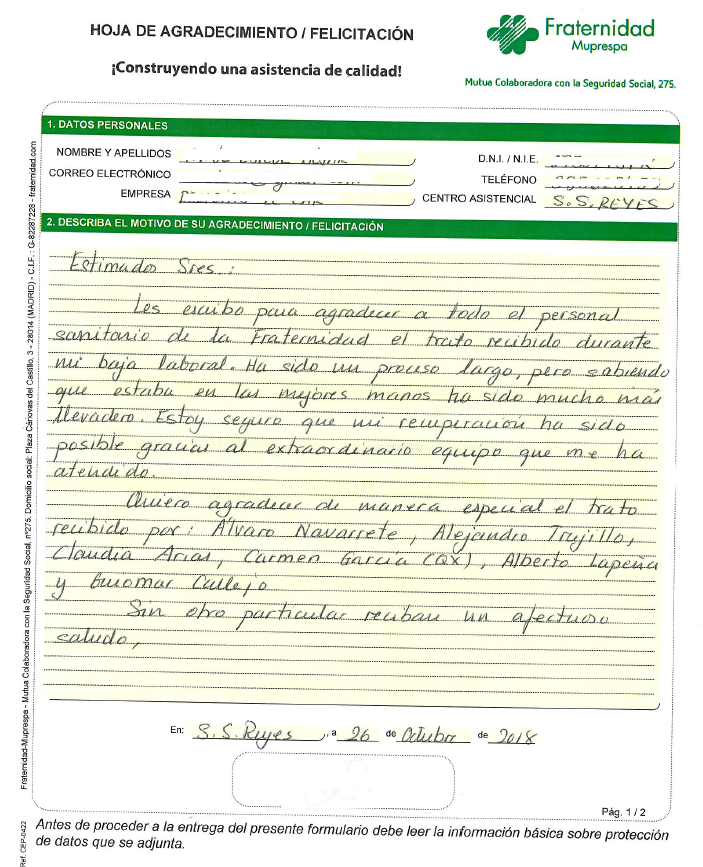 HOJA DE AGRADECIMIENTO / FELICITACIÓN
¡Construyendo una asistencia de calidad!
Fraternidad
Muprespa
Mutua Colaboradora con la Seguridad Social, 275.
1. DATOS PERSONALES
NOMBRE Y APELLIDOS
D.N.I. / N.I.E.
CORREO ELECTRÓNICO
TELÉFONO
EMPRESA
CENTRO ASISTENCIAL S.S. REYES
2. DESCRIBA EL MOTIVO DE SU AGRADECIMIENTO / FELICITACIÓN
Estimados Sres.:
Les escribo para agradecer a todo el personal
sanitario de la Fraternidad el trato recibido durante
mi baja laboral. Ha sido un proceso largo, pero sabiendo
que estaba en las mejores manos ha sido mucho más
llevadero. Estoy seguro que mi recuperación ha sido
posible gracias al extraordinario equipo que me ha
atendido.
Quiero agradecer de manera especial el trato
recibido por: Álvaro Navarrete, Alejandro Trujillo,
Claudia Arias, Carmen García (QX), Alberto Lapeña
y Guiomar Callejo
Sin otro particular reciban un afectuoso
saludo,
En: S.S. Reyes, a 26 de Octubre de 2018
Pág. 1 / 2
Antes de proceder a la entrega del presente formulario debe leer la información básica sobre protección
de datos que se adjunta.
Fraternidad-Muprespa - Mutua Colaboradora con la Seguridad Social, nº275. Domicilio social: Plaza Cánovas del Castillo, 3 - 28014 (MADRID) - C.I.F.: G-82287228 - fraternidad.com
Ref. CEP-0422